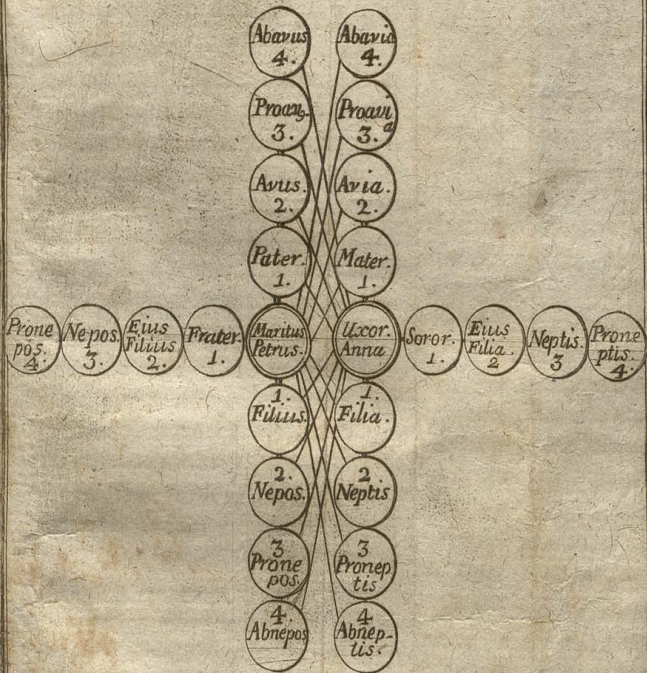 Abavus
4.
Abavia
4.
Proavꝰ
3.
Proavi
a
3.
Avus.
2.
Avia.
2.
Pater.
1.
Mater.
1.
Prone
pos.
4.
Nepos.
3.
Eius
Filius
2.
Frater.
1.
Maritus
Petrus.
Uxor.
Anna
Soror.
1.
Eius
Filia.
2
Neptis.
3
Prone
ptis.
4.
1.
Filius.
1.
Filia.
2.
Nepos.
2
Neptis
3
Prone
pos.
3
Pronep
tis
4
Abnepos
4
Abnep-
tis.